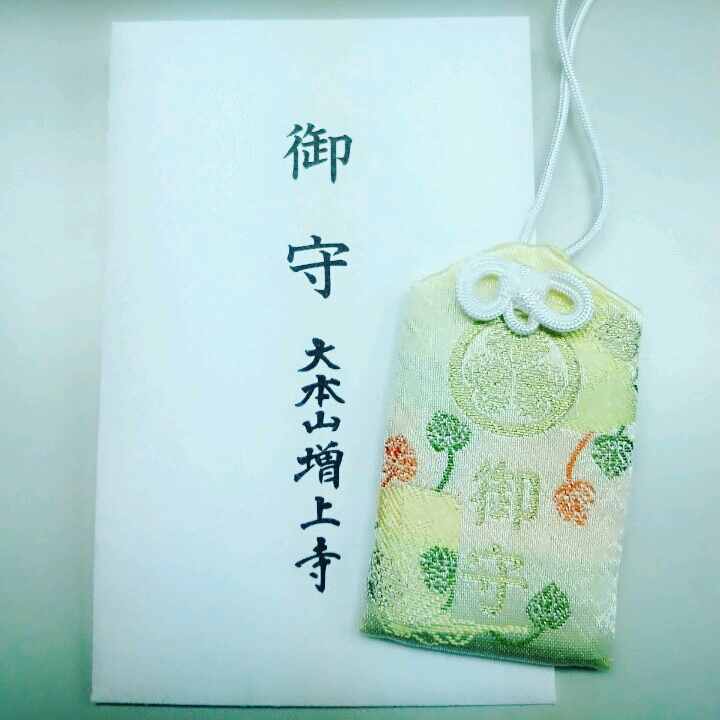 御守
大本山増上寺
御守